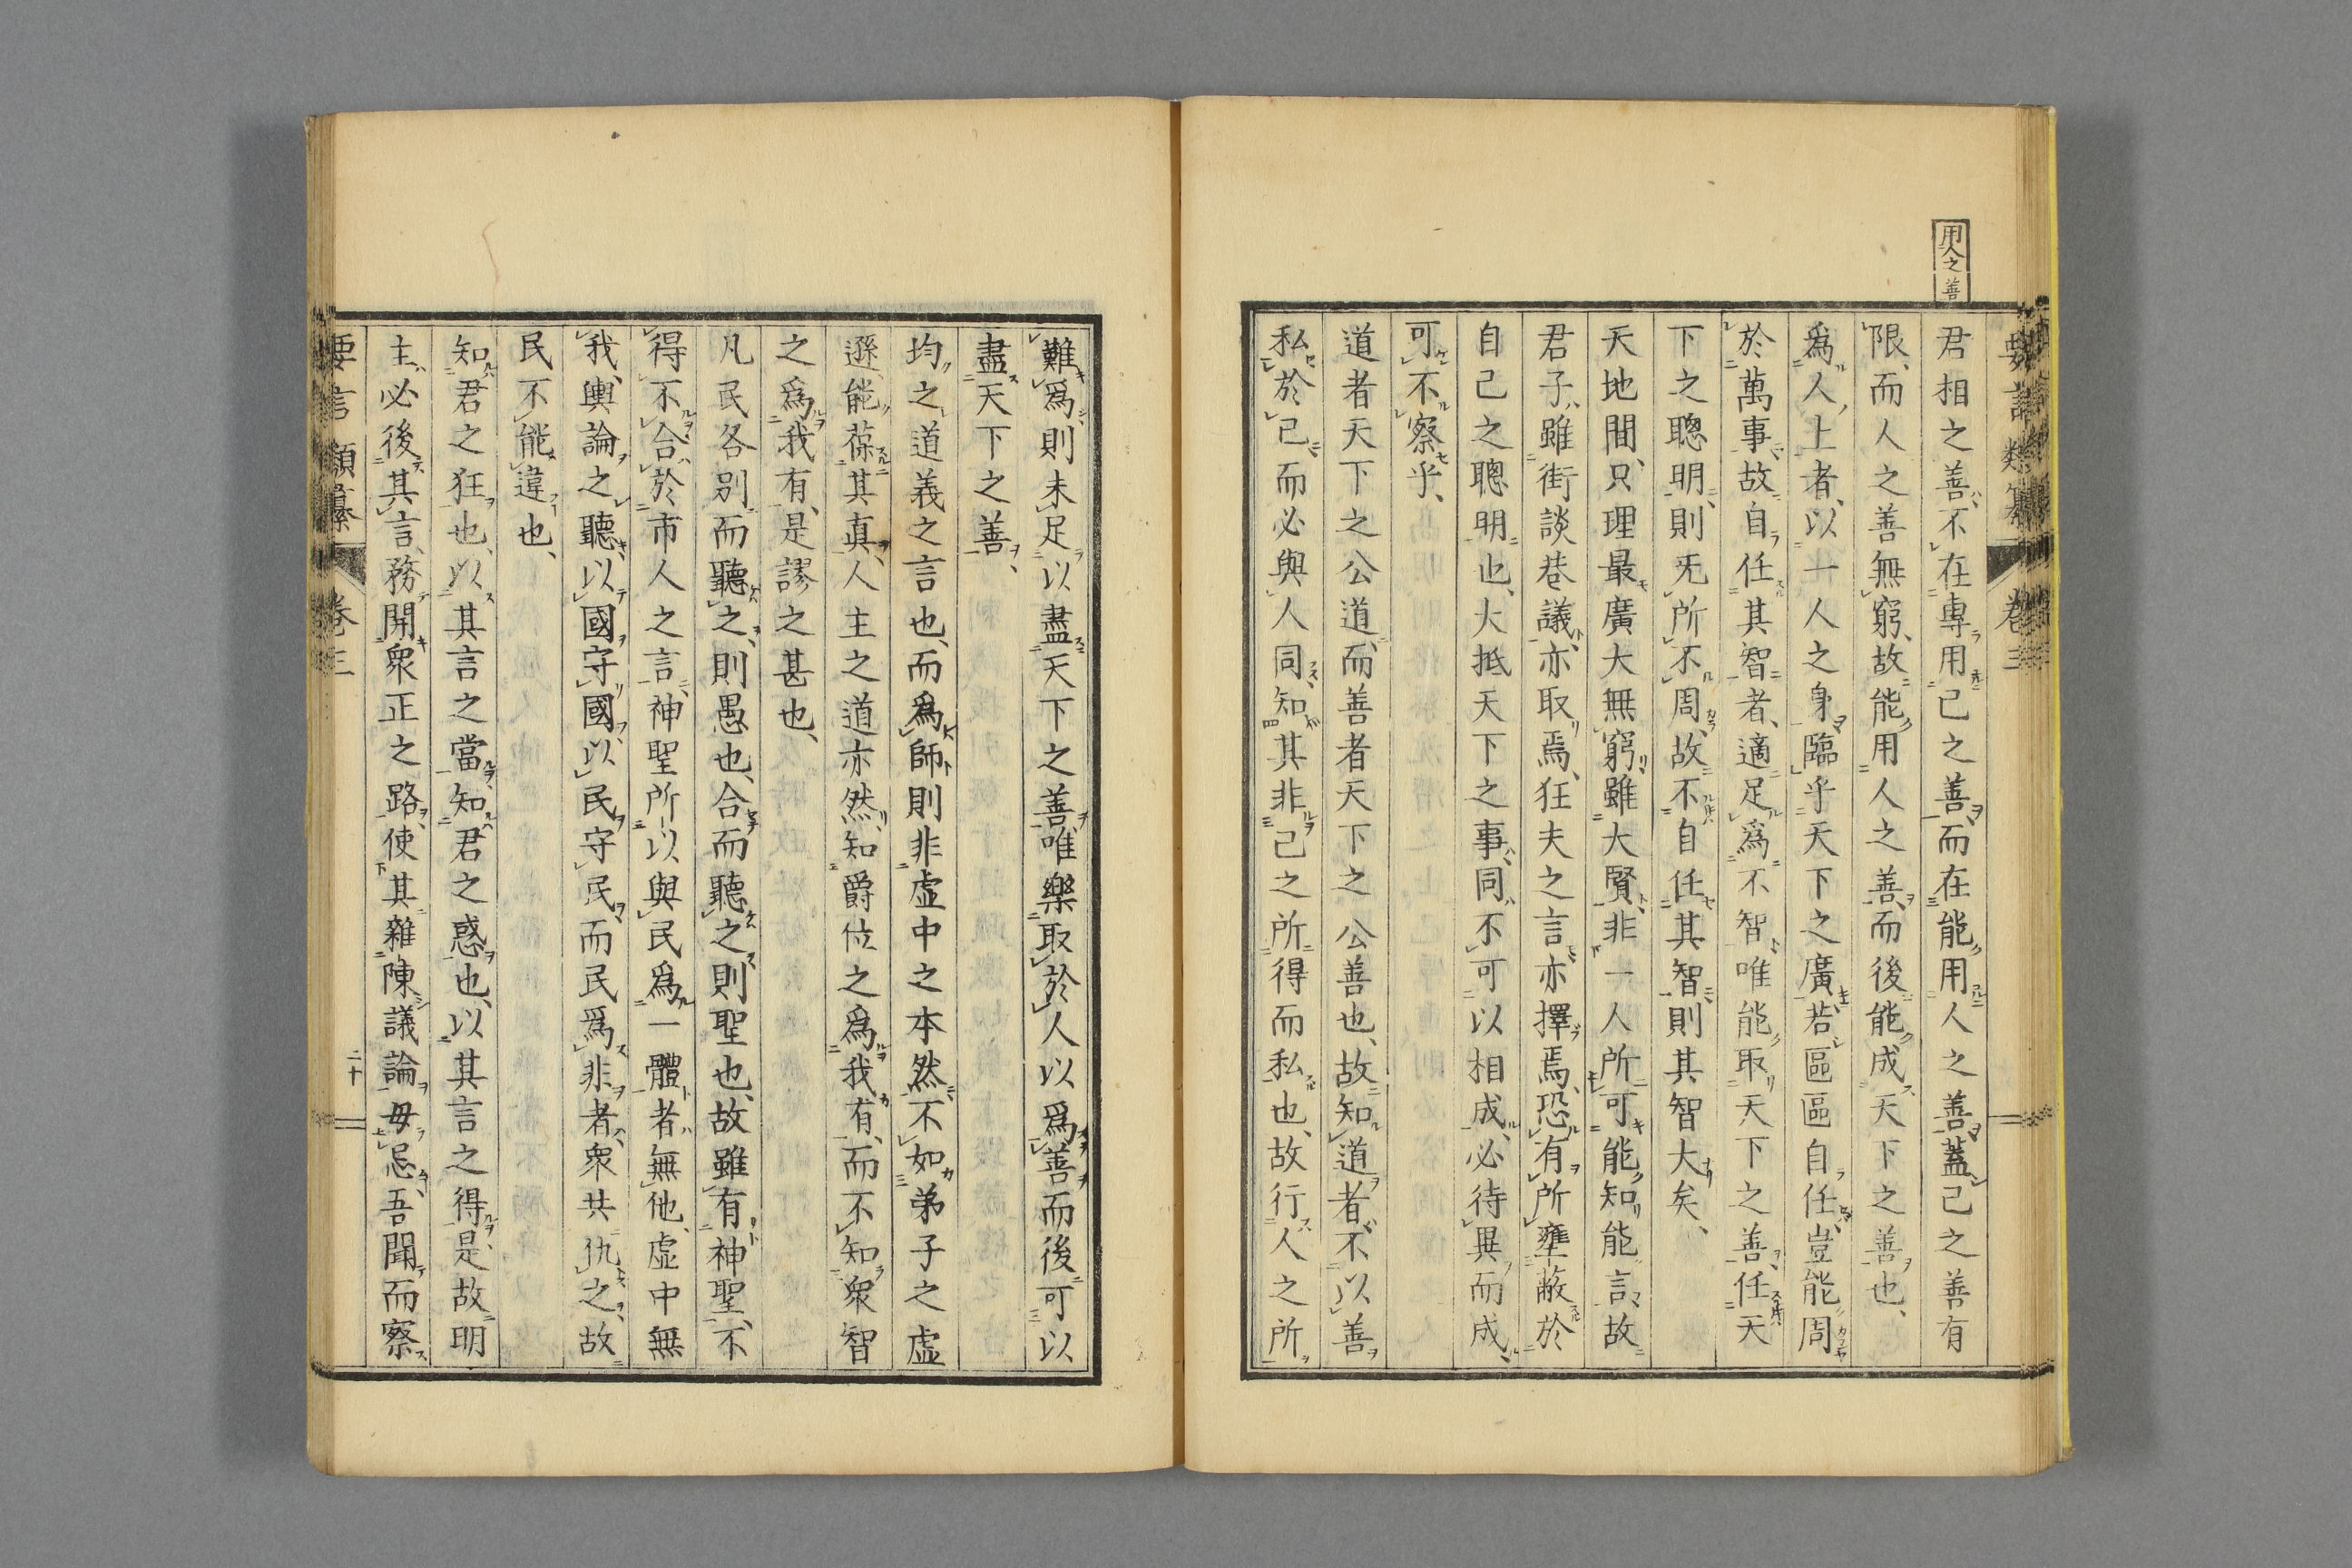 用人之善
君相之善不在專用己之善而在能用人之善蓋己之善有
限、而人之善無窮、故能用人之善、而後能成天下之善也、
爲人上者、以一人之身臨乎天下之廣、若區區自任、豈能周
於萬事、故自任其智者、適足爲不智、唯能取天下之善、任天
下之聰明、則旡所不周、故不自任其智、則其智大矣、
天地間、只理最廣大無窮、雖大賢、非一人所可能知能言、故
君子雖街談巷議、亦取焉、狂夫之言亦擇焉、恐有所壅蔽於
自己之聰明也、大抵天下之事、同不可以相成、必待異而成、
可不察乎、
道者天下之公道、而善者天下之公善也、故知道者、不以善
私於己、而必與人同、知其非己之所得而私也、故行人之所
難爲、則未足以盡天下之善、唯樂取於人以爲善、而後可以
盡天下之善、
均之道義之言也、而爲師則非虛中之本然、不如弟子之虛
遜、能葆其眞、人主之道亦然、知爵位之爲我有、而不知衆智
之爲我有、是謬之甚也、
凡民各別而聽之、則愚也、合而聽之、則聖也、故雖有神聖、不
得不合於市人之言、神聖所以與民爲一體者、無他、虛中無
我、輿論之聽、以國守國、以民守民、而民爲非者、衆共仇之、故
民不能違也、
知君之狂也、以其言之當、知君之惑也、以其言之得、是故明
主必後其言、務開衆正之路、使其雜陳議論、毋忌吾聞而察
要言類纂
卷三
二十